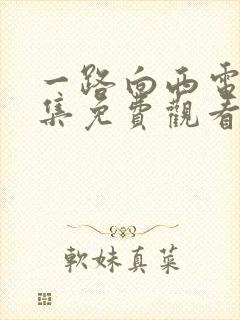 一路向西電
集免費觀看
軟妹真菜